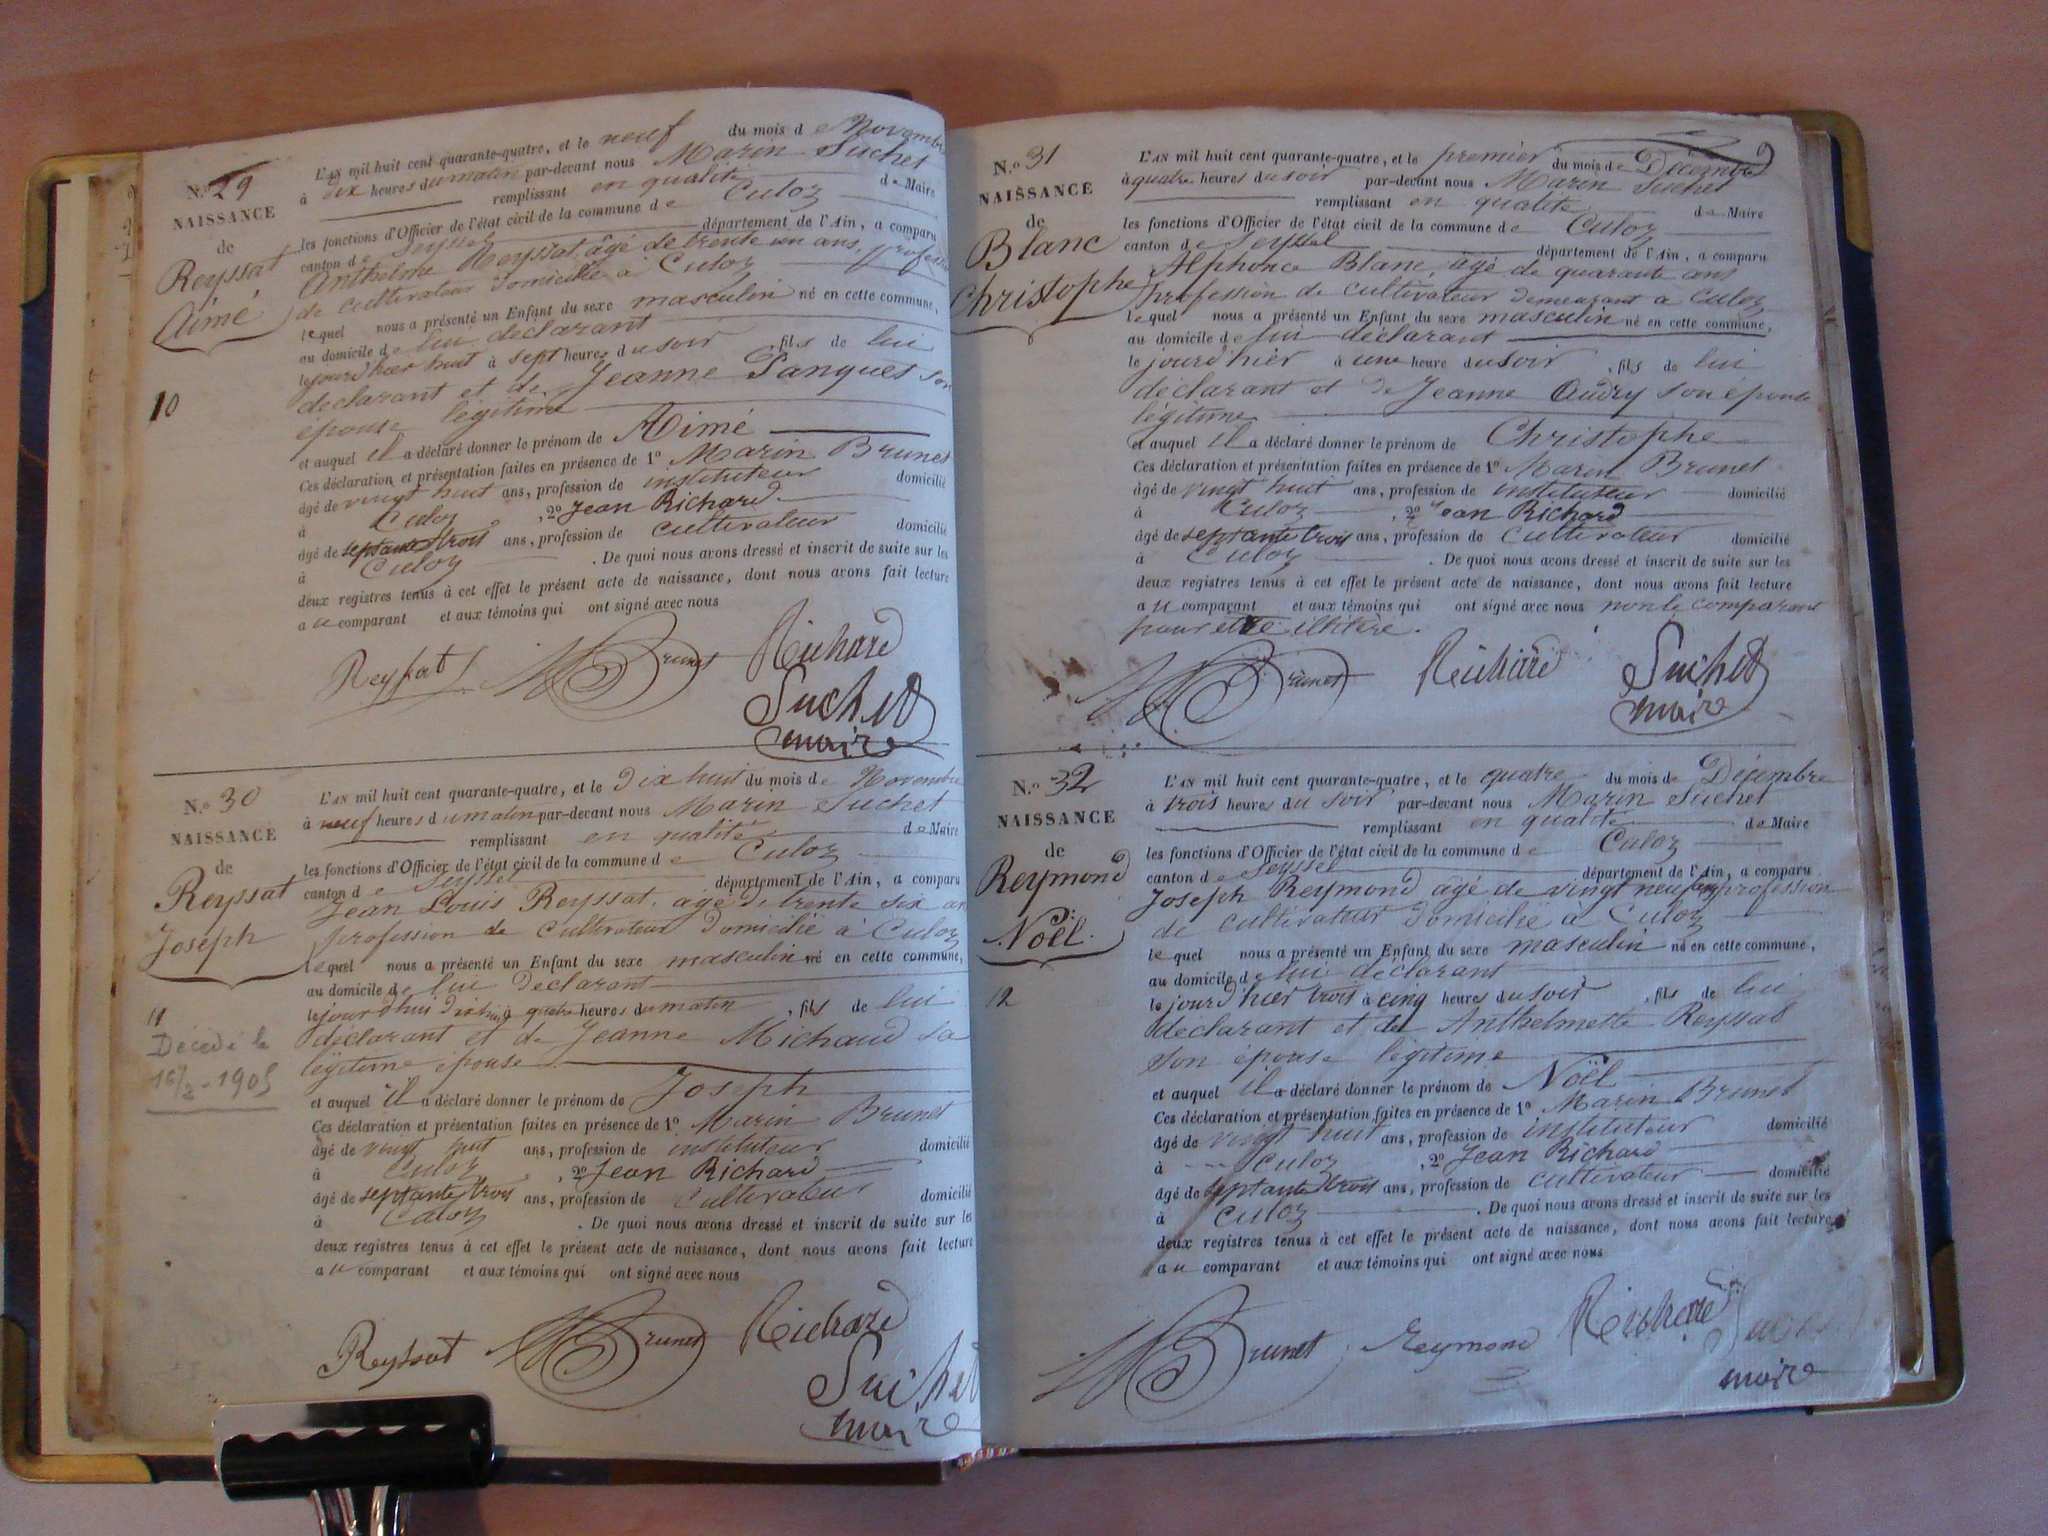 N.o 29
NAISSANCE
de
Reyssat
Aimé
10
L'AN mil huit cent quarante-quatre, et le neuf du mois de Novembre
à dix heures du matin par-devant nous Marin Suchet
remplissant en qualité de Maire
les fonctions d'Officier de l'état civil de la commune de Culoz
canton de Seyssel département de l'Ain, a comparu
Anthelme Reyssat, âgé de trente un ans, profession
de cultivateur domicilié à Culoz
lequel nous a présenté un Enfant du sexe masculin né en cette commune,
au domicile de lui déclarant
le jourd'hier huit à sept heures du soir fils de lui
déclarant et de Jeanne Panquet son
épouse légitime
et auquel il a déclaré donner le prénom de Aimé
Ces déclaration et présentation faites en présence de 1o Marin Brunet
âgé de vingt huit ans, profession de instituteur domicilié
à Culoz, 2o Jean Richard
âgé de septante trois ans, profession de cultivateur domicilié
à Culoz. De quoi nous avons dressé et inscrit de suite sur les
deux registres tenus à cet effet le présent acte de naissance, dont nous avons fait lecture
au comparant et aux témoins qui ont signé avec nous
Reyssat Brunet Richard
Suchet
maire
N.o 30
NAISSANCE
de
Reyssat
Joseph
11
Décédé le
16/2-1905
L'AN mil huit cent quarante-quatre, et le dix huit du mois de Novembre
à neuf heures du matin par-devant nous Marin Suchet
remplissant en qualité de Maire
les fonctions d'Officier de l'état civil de la commune de Culoz
canton de Seyssel département de l'Ain, a comparu
Jean Louis Reyssat, âgé de trente six an
profession de cultivateur domicilié à Culoz
lequel nous a présenté un Enfant du sexe masculin né en cette commune,
au domicile de lui déclarant
le jourd'hui dix huit à quatre heures du matin, fils de lui
déclarant et de Jeanne Michaud sa
légitime épouse
et auquel il a déclaré donner le prénom de Joseph
Ces déclaration et présentation faites en présence de 1o Marin Brunet
âgé de vingt huit ans, profession de instituteur domicilié
à Culoz, 2o Jean Richard
âgé de septante trois ans, profession de cultivateur domicilié
à Culoz. De quoi nous avons dressé et inscrit de suite sur les
deux registres tenus à cet effet le présent acte de naissance, dont nous avons fait lecture
au comparant et aux témoins qui ont signé avec nous
Reyssat Brunet Richard
Suchet
maire
N.o 31
NAISSANCE
de
Blanc
Christophe
L'AN mil huit cent quarante-quatre, et le premier du mois de Décembre
à quatre heures du soir par-devant nous Marin Suchet
remplissant en qualité de Maire
les fonctions d'Officier de l'état civil de la commune de Culoz
canton de Seyssel département de l'Ain, a comparu
Alphonce Blanc, âgé de quarante ans
profession de cultivateur demeurant à Culoz
lequel nous a présenté un Enfant du sexe masculin né en cette commune,
au domicile de lui déclarant
le jourd'hier à une heure du soir, fils de lui
déclarant et de Jeanne Audry son épouse
légitime
et auquel il a déclaré donner le prénom de Christophe
Ces déclaration et présentation faites en présence de 1o Marin Brunet
âgé de vingt huit ans, profession de instituteur domicilié
à Culoz, 2o Jean Richard
âgé de septante trois ans, profession de cultivateur domicilié
à Culoz. De quoi nous avons dressé et inscrit de suite sur les
deux registres tenus à cet effet le présent acte de naissance, dont nous avons fait lecture
au comparant et aux témoins qui ont signé avec nous non le comparant
pour être illitère.
Brunet Richard Suchet
maire
N.o 32
NAISSANCE
de
Reymond
Noël
12
L'AN mil huit cent quarante-quatre, et le quatre du mois de Décembre
à trois heures du soir par-devant nous Marin Suchet
remplissant en qualité de Maire
les fonctions d'Officier de l'état civil de la commune de Culoz
canton de Seyssel département de l'Ain, a comparu
Joseph Reymond âgé de vingt neuf ans profession
de cultivateur domicilié à Culoz
lequel nous a présenté un Enfant du sexe masculin né en cette commune,
au domicile de lui déclarant
le jourd'hier trois à cinq heures du soir, fils de lui
déclarant et de Anthelmette Reyssat
son épouse légitime
et auquel il a déclaré donner le prénom de Noël
Ces déclaration et présentation faites en présence de 1o Marin Brunet
âgé de vingt huit ans, profession de instituteur domicilié
à Culoz, 2o Jean Richard
âgé de septante trois ans, profession de cultivateur domicilié
à Culoz. De quoi nous avons dressé et inscrit de suite sur les
deux registres tenus à cet effet le présent acte de naissance, dont nous avons fait lecture
au comparant et aux témoins qui ont signé avec nous
Brunet Reymond Richard
maire